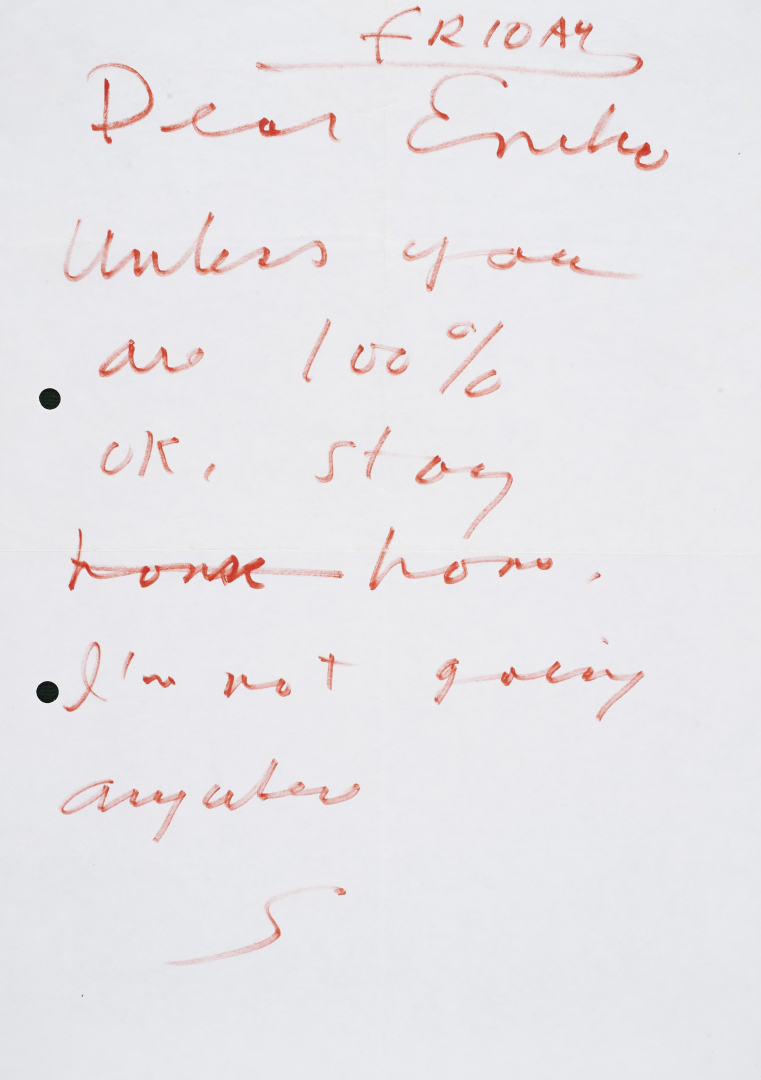 FRIDAY
Dear Eniko
Unless you
are 100%
OK, stay
home home.
I'm not going
anywhere
S